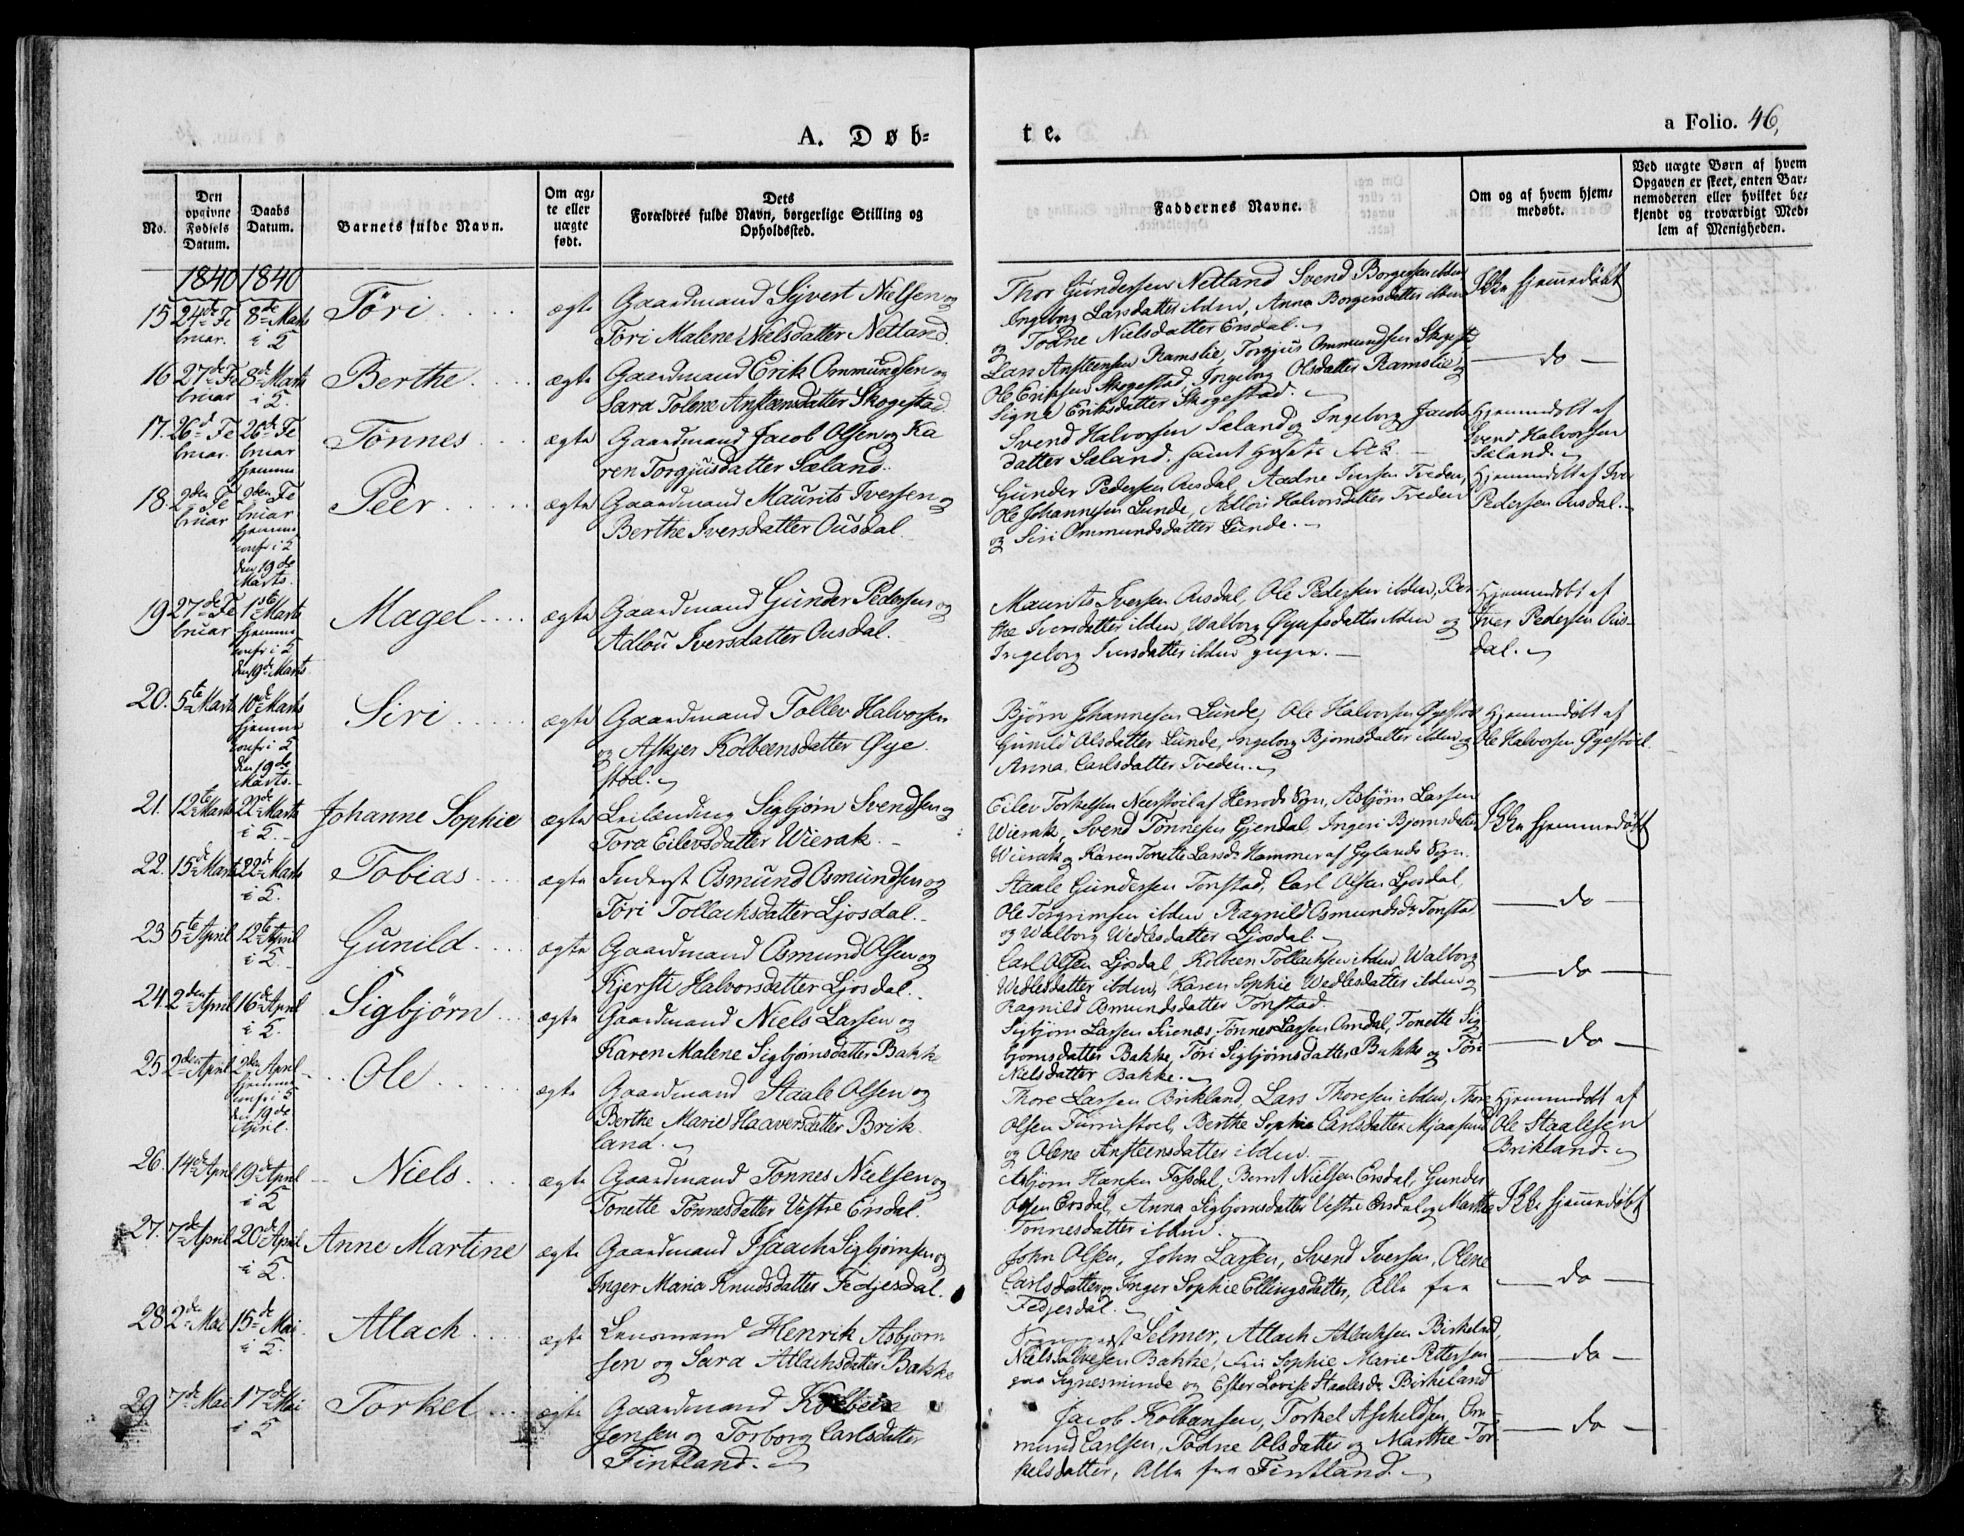 A. Døb=
te.
a Folio. 46,
No.
Den opgivne Fødsels Datum.
Daabs Datum.
Barnets fulde Navn.
Om ægte eller uægte født.
Dets Forældres fulde Navn, borgerlige Stilling og Opholdssted.
Faddernes Navne.
Om og af hvem hjemmedøbt.
Ved uægte Børn af hvem Opgaven er skeet, enten Barnemoderen eller hvilket bekjendt og troværdigt Medlem af Menigheden.
1840 1840
15 24de Februar. 8de Marts i 5 Töri ægte Gaardmand Syvert Nielsen og
Töri Malene Nielsdatter Netland.
Thor Gundersen Netland Svend Borgersen ibden
Ingeborg Larsdatter ibden, Anna Borgersdatter ibden
og Todne Nielsdatter Ersdal.
Ikke hjemmedøbt
16 27de Februar 8de Marts i 5. Berthe ægte Gaardmand Erik Ommundsen og
Sara Tolene Ansteensdatter Skogestad
Lars Ansteensen Ramslie, Torgjus Ommundsen Skogest
Ole Eriksen Skogestad, Ingeborg Olsdatter Ramslie og
Signe Eriksdatter Skogestad.
do
17. 26de Februar. 26de Februar hjemme Tönnes ægte Gaardmand Jacob Olsen og Ka
ren Torgjusdatter Sæland.
Svend Halvorsen Sæland og Ingeborg Jacobs
datter Sæland. samt Husets Folk
Hjemmedøbt af
Svend Halvorsen
Sæland.
18. 2den Februar 2den Februar hjemme confr i 5 den 19de Marts. Peer ægte Gaardmand Maurits Iversen og
Berthe Iversdatter Ousdal
Gunder Pedersen Ousdal Aadne Iversen Tveden,
Ole Johannesen Lunde, Adlou Halvorsdatter Tveden
og Siri Ommundsdatter Lunde.
Hjemmedøbt af Iver
Pedersen Ousdal.
19 27de Februar 1ste Marts hjemme confr i 5 den 19de Marts Magel ægte Gaardmand Gunder Pedersen og
Adlou Iversdatter Ousdal.
Maurits Iversen Ousdal, Ole Pedersen ibden, Ber
the Iversdatter ibden, Walborg Øyufsdatter ibden og
Ingeborg Iversdatter ibden
Hjemmedøbt af
Iver Pedersen Ous-
dal.
20. 5te Marts 10de Marts hjemme confr i 5 den 19de Marts. Siri ægte Gaardmand Tollev Halvorsen
og Askjer Kolbeensdatter Øye
støl.
Bjørn Johannesen Lunde, Ole Halvorsen Øyestøl
Gunild Olsdatter Lunde, Ingeborg Bjørnsdatter ibden og
Anna Carlsdatter Tveden.
Hjemmedøbt af
Ole Halvorsen Øyestøel.
21. 12te Marts 22de Marts i 5. Johanne Sophie ægte Leilænding Sigbjørn Svendsen og
Tora Eilevsdatter Wierak.
Eilev Torkelsen Neerstöil af Herrods Sogn, Asbjörn Larsen
Wierak, Svend Tonnesen Gjendal, Ingeri Bjørnsdatter
Wierak og Karen Tonette Larsdr Hammer af Gylands Sogn.
Ikke hjemmedøbt
22. 15de Marts 22de Marts i 5. Tobias ægte Inderst Osmund Osmundsen og
Töri Tollachsdatter Ljosdal.
Staale Gundersen Tonstad, Carl Olsen Ljosdal,
Ole Torgrimsen ibden Ragnild Osmundsdr Tonstad
og Walborg Wedlesdatter Ljosdal.
do
23 5te April 12te April i 5. Gunild ægte Gaardmand Osmund Olsen og
Kjersti Halvorsdatter Ljosdal.
Carl Olsen Ljosdal, Kolbeen Tollachsen ibden, Walborg
Wedlesdatter ibden, Karen Sophie Wedlesdatter ibden og
Ragnild Osmundsdatter Tonstad.
do
24. 2den April 16de April i 5. Sigbjörn ægte Gaardmand Niels Larsen og
Karen Malene Sigbjørnsdatter Bakke
Sigbjørn Larsen Sirenæs, Tönnes Larsen Omdal, Tonette Sig
bjørnsdatter Bakke, Töri Sigbjørnsdatter Bakke og Töri
Nielsdatter Bakke.
do
25 2den April 2den April hjemme confr i 5 den 19de April. Ole ægte Gaardmand Staale Olsen og
Berthe Marie Haaversdatter Brik
land.
Thore Larsen Brikland, Lars Thoresen ibden, Thore
Olsen Tunnstoel, Berthe Sophie Carlsdatter Mjaasund
og Olene Ansteensdatter ibden
Hjemmedøbt af
Ole Staalesen
Brikland.
26. 14de April 19de April i 5 Niels ægte Gaardmand Tonnes Nielsen og
Tonette Tonnesdatter Vestre Ersdal.
Asbjørn Hansen Fossdal, Bernt Nielsen Ersdal, Gunder
Olsen Ersdal, Anna Sigbjornsdatter Vestre Ersdal og Marthe
Tonnesdatter ibden.
Ikke hjemmedøbt
27. 7de April 20de April i 5. Anne Martine ægte Gaardmand Isaach Sigbjörnsen og
Inger Maria Knudsdatter Fedjesdal.
John Olsen, John Larsen, Svend Iversen, Olene
Carlsdatter og Inger Sophie Ellingsdatter, Alle fra
Fedjesdal.
do
28 2den Mai 15de Mai i 5. Atlach ægte Lensmand Henrik Asbjørn
sen og Sara Atlachsdatter Bakke
Selmer, Atlach Atlachsen Birkeland,
Niels Salvesen Bakke, Frue Sophie Marie Pettersen
paa Signesminde og Ester Lovise Staalesdr Birkeland
do
29 7de Mai 17de Mai i 5 Torkel ægte Gaardmand Kolbein
Jensen og Torborg Carlsdatter
Fintland.
Jacob Kolbensen, Torkel Aschildsen, Om
mund Carlsen, Todne Olsdatter og Marthe Tor
kelsdatter, Alle fra Fintland.
do